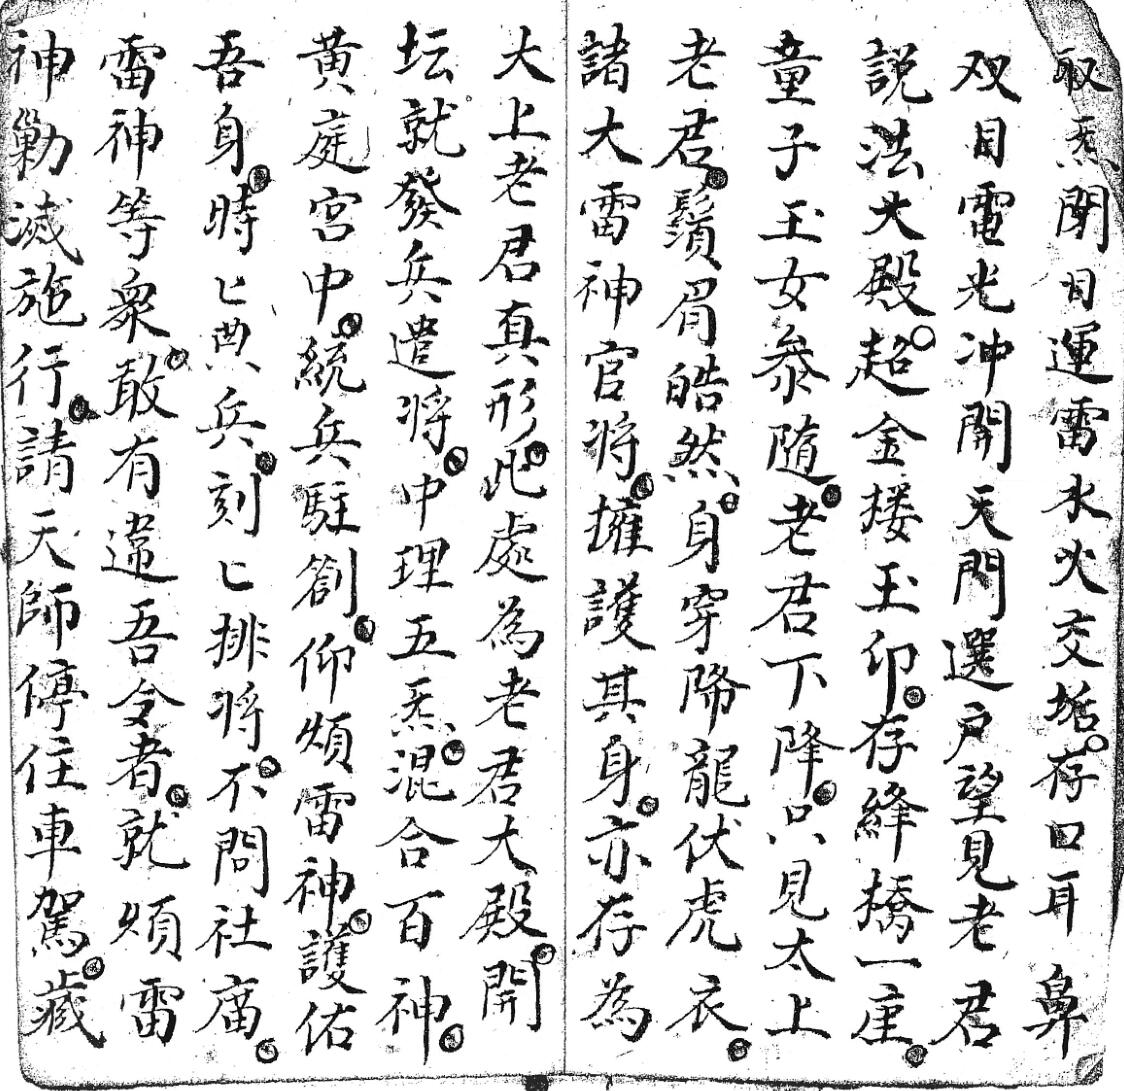 取炁閉目運雷水火交姤存口耳鼻
双目電光冲開天門選户望見老君
説法大殿超金楼玉卯存絳橋一座
童子玉女叅随老君下降只見太上
老君鬚眉皓然身穿降龍伏虎衣
諸大雷神官将擁護其身亦存為
大上老君真形此處為老君大殿開
坛就發兵遣将中理五炁混合百神
黄庭宮中統兵駐劄仰煩雷神護佑
吾身時匕点兵刻匕排将不問社庙
雷神等衆敢有違吾令者就煩雷
神勦滅施行請天師停住車駕藏